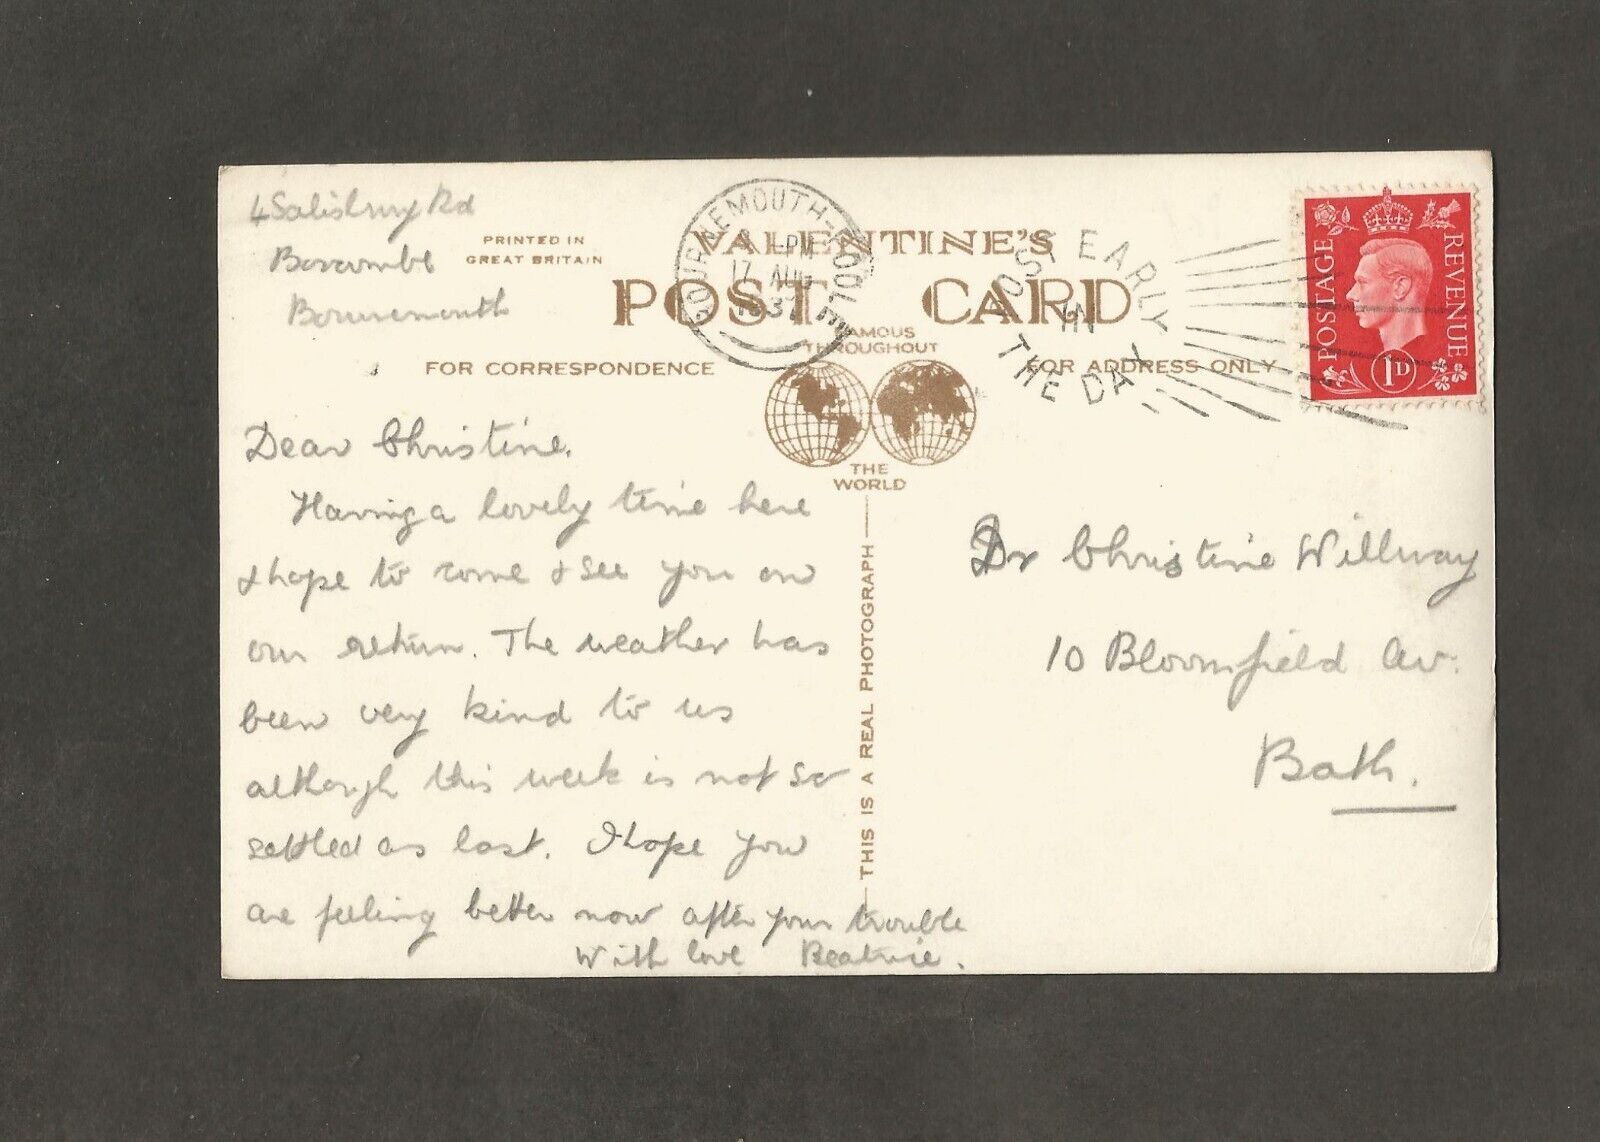 4 Salisbury Rd
Boscombe
Bournemouth
PRINTED IN
GREAT BRITAIN
VALENTINE'S
POST CARD
FAMOUS
THROUGHOUT
THE
WORLD
FOR CORRESPONDENCE
FOR ADDRESS ONLY
BOURNEMOUTH-POOLE
PM
17 AUG
1937
POST EARLY
IN
THE DAY
POSTAGE
REVENUE
1D
Dear Christine.
Having a lovely time here
& hope to come & see you on
our return. The weather has
been very kind to us
although this week is not so
settled as last. I hope you
are feeling better now after your trouble
With love Beatrice.
THIS IS A REAL PHOTOGRAPH
Dr Christine Willway
10 Bloomfield Av.
Bath.